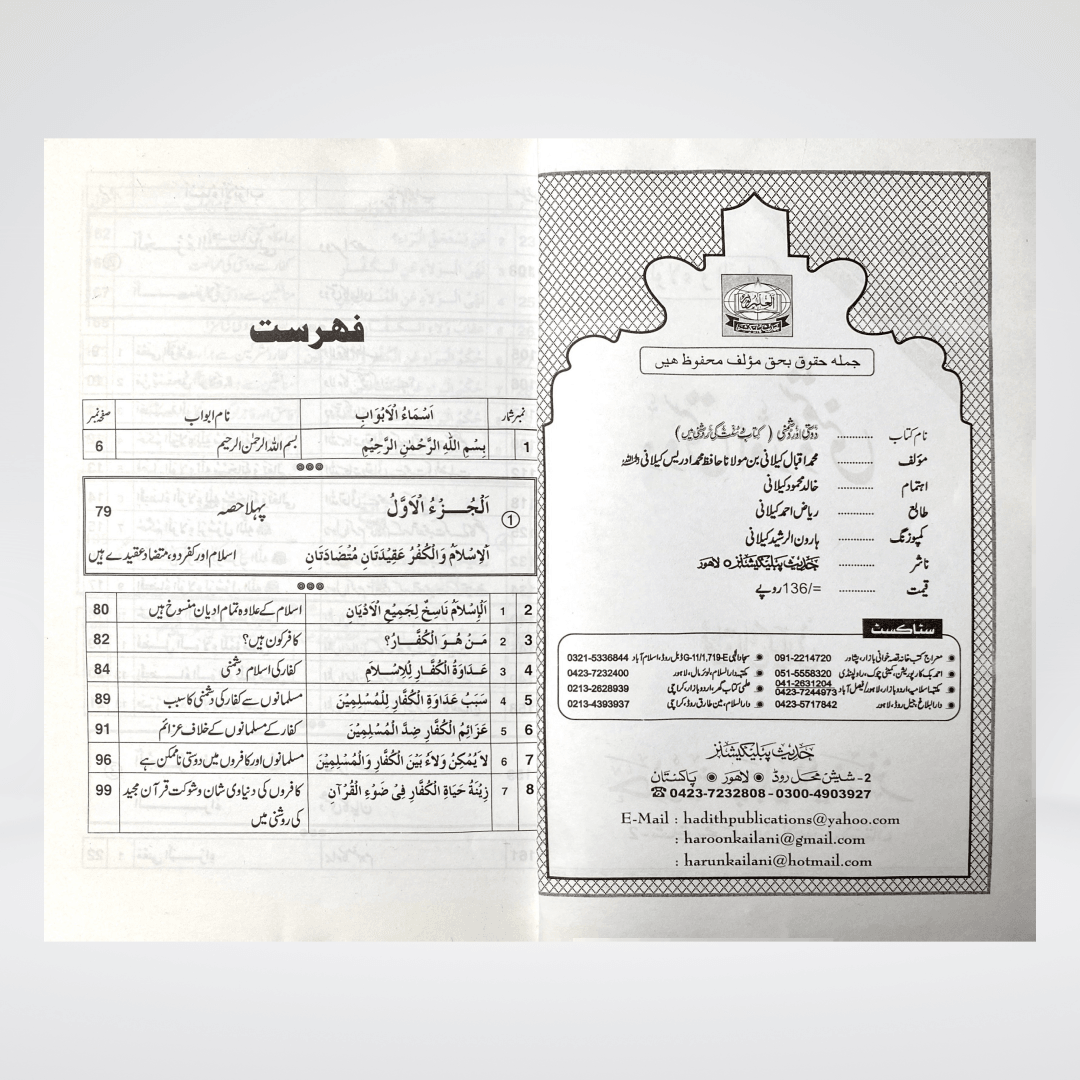 جملہ حقوق بحق مؤلف محفوظ ھیں
نام کتاب ............ دوستی اور دشمنی (کتاب و سنت کی روشنی میں)
مؤلف ............ محمد اقبال کیلانی بن مولانا حافظ محمد ادریس کیلانی رحمہ اللہ
اہتمام ............ خالد محمود کیلانی
طابع ............ ریاض احمد کیلانی
کمپوزنگ ............ ہارون الرشید کیلانی
ناشر ............ حدیث پبلیکیشنز، لاہور
قیمت ............ =/136 روپے
سٹاکسٹ
معراج کتب خانہ قصہ خوانی بازار، پشاور 091-2214720
احمد بک کارپوریشن، کمیٹی چوک، راولپنڈی 051-5558320
مکتبہ اسلامیہ، اردو بازار، لاہور/فیصل آباد 041-2631204 0423-7244973
دارالبلاغ جیل روڈ، لاہور 0423-5717842
G-11/1,719-E ڈبل روڈ، اسلام آباد 0321-5336844
مکتبہ دارالسلام، لوئر مال، لاہور 0423-7232400
علمی کتاب گھر، اردو بازار، کراچی 0213-2628939
دارالسلام، مین طارق روڈ، کراچی 0213-4393937
حدیث پبلیکیشنز
2- شیش محل روڈ ◉ لاہور ◉ پاکستان
☎ 0423-7232808 - 0300-4903927
E-Mail : hadithpublications@yahoo.com
: haroonkailani@gmail.com
: harunkailani@hotmail.com
فہرست
نمبر شمار اَسْمَاءُ الْاَبْوَابِ نام ابواب صفحہ نمبر
1 بِسْمِ اللّٰهِ الرَّحْمٰنِ الرَّحِيْمِ بسم اللہ الرحمٰن الرحیم 6
① اَلْجُــزْءُ الْاَوَّلُ پہلا حصہ 79
اَلْاِسْلَامُ وَالْكُفْرُ عَقِيْدَتَانِ مُتَضَادَتَانِ اسلام اور کفر دو، متضاد عقیدے ہیں
2 1 اَلْاِسْلَامُ نَاسِخٌ لِجَمِيْعِ الْاَدْيَانِ اسلام کے علاوہ تمام ادیان منسوخ ہیں 80
3 2 مَنْ هُوَ الْكُفَّارُ؟ کافر کون ہیں؟ 82
4 3 عَدَاوَةُ الْكُفَّارِ لِلْاِسْلَامِ کفار کی اسلام دشمنی 84
5 4 سَبَبُ عَدَاوَةِ الْكُفَّارِ لِلْمُسْلِمِيْنَ مسلمانوں سے کفار کی دشمنی کا سبب 89
6 5 عَزَائِمُ الْكُفَّارِ ضِدَّ الْمُسْلِمِيْنَ کفار کے مسلمانوں کے خلاف عزائم 91
7 6 لَا يُمْكِنُ وَلَاءٌ بَيْنَ الْكُفَّارِ وَالْمُسْلِمِيْنَ مسلمانوں اور کافروں میں دوستی ناممکن ہے 96
8 7 زِيْنَةُ حَيَاةِ الْكُفَّارِ فِىْ ضَوْءِ الْقُرْآنِ کافروں کی دنیاوی شان و شوکت قرآن مجید 99
کی روشنی میں